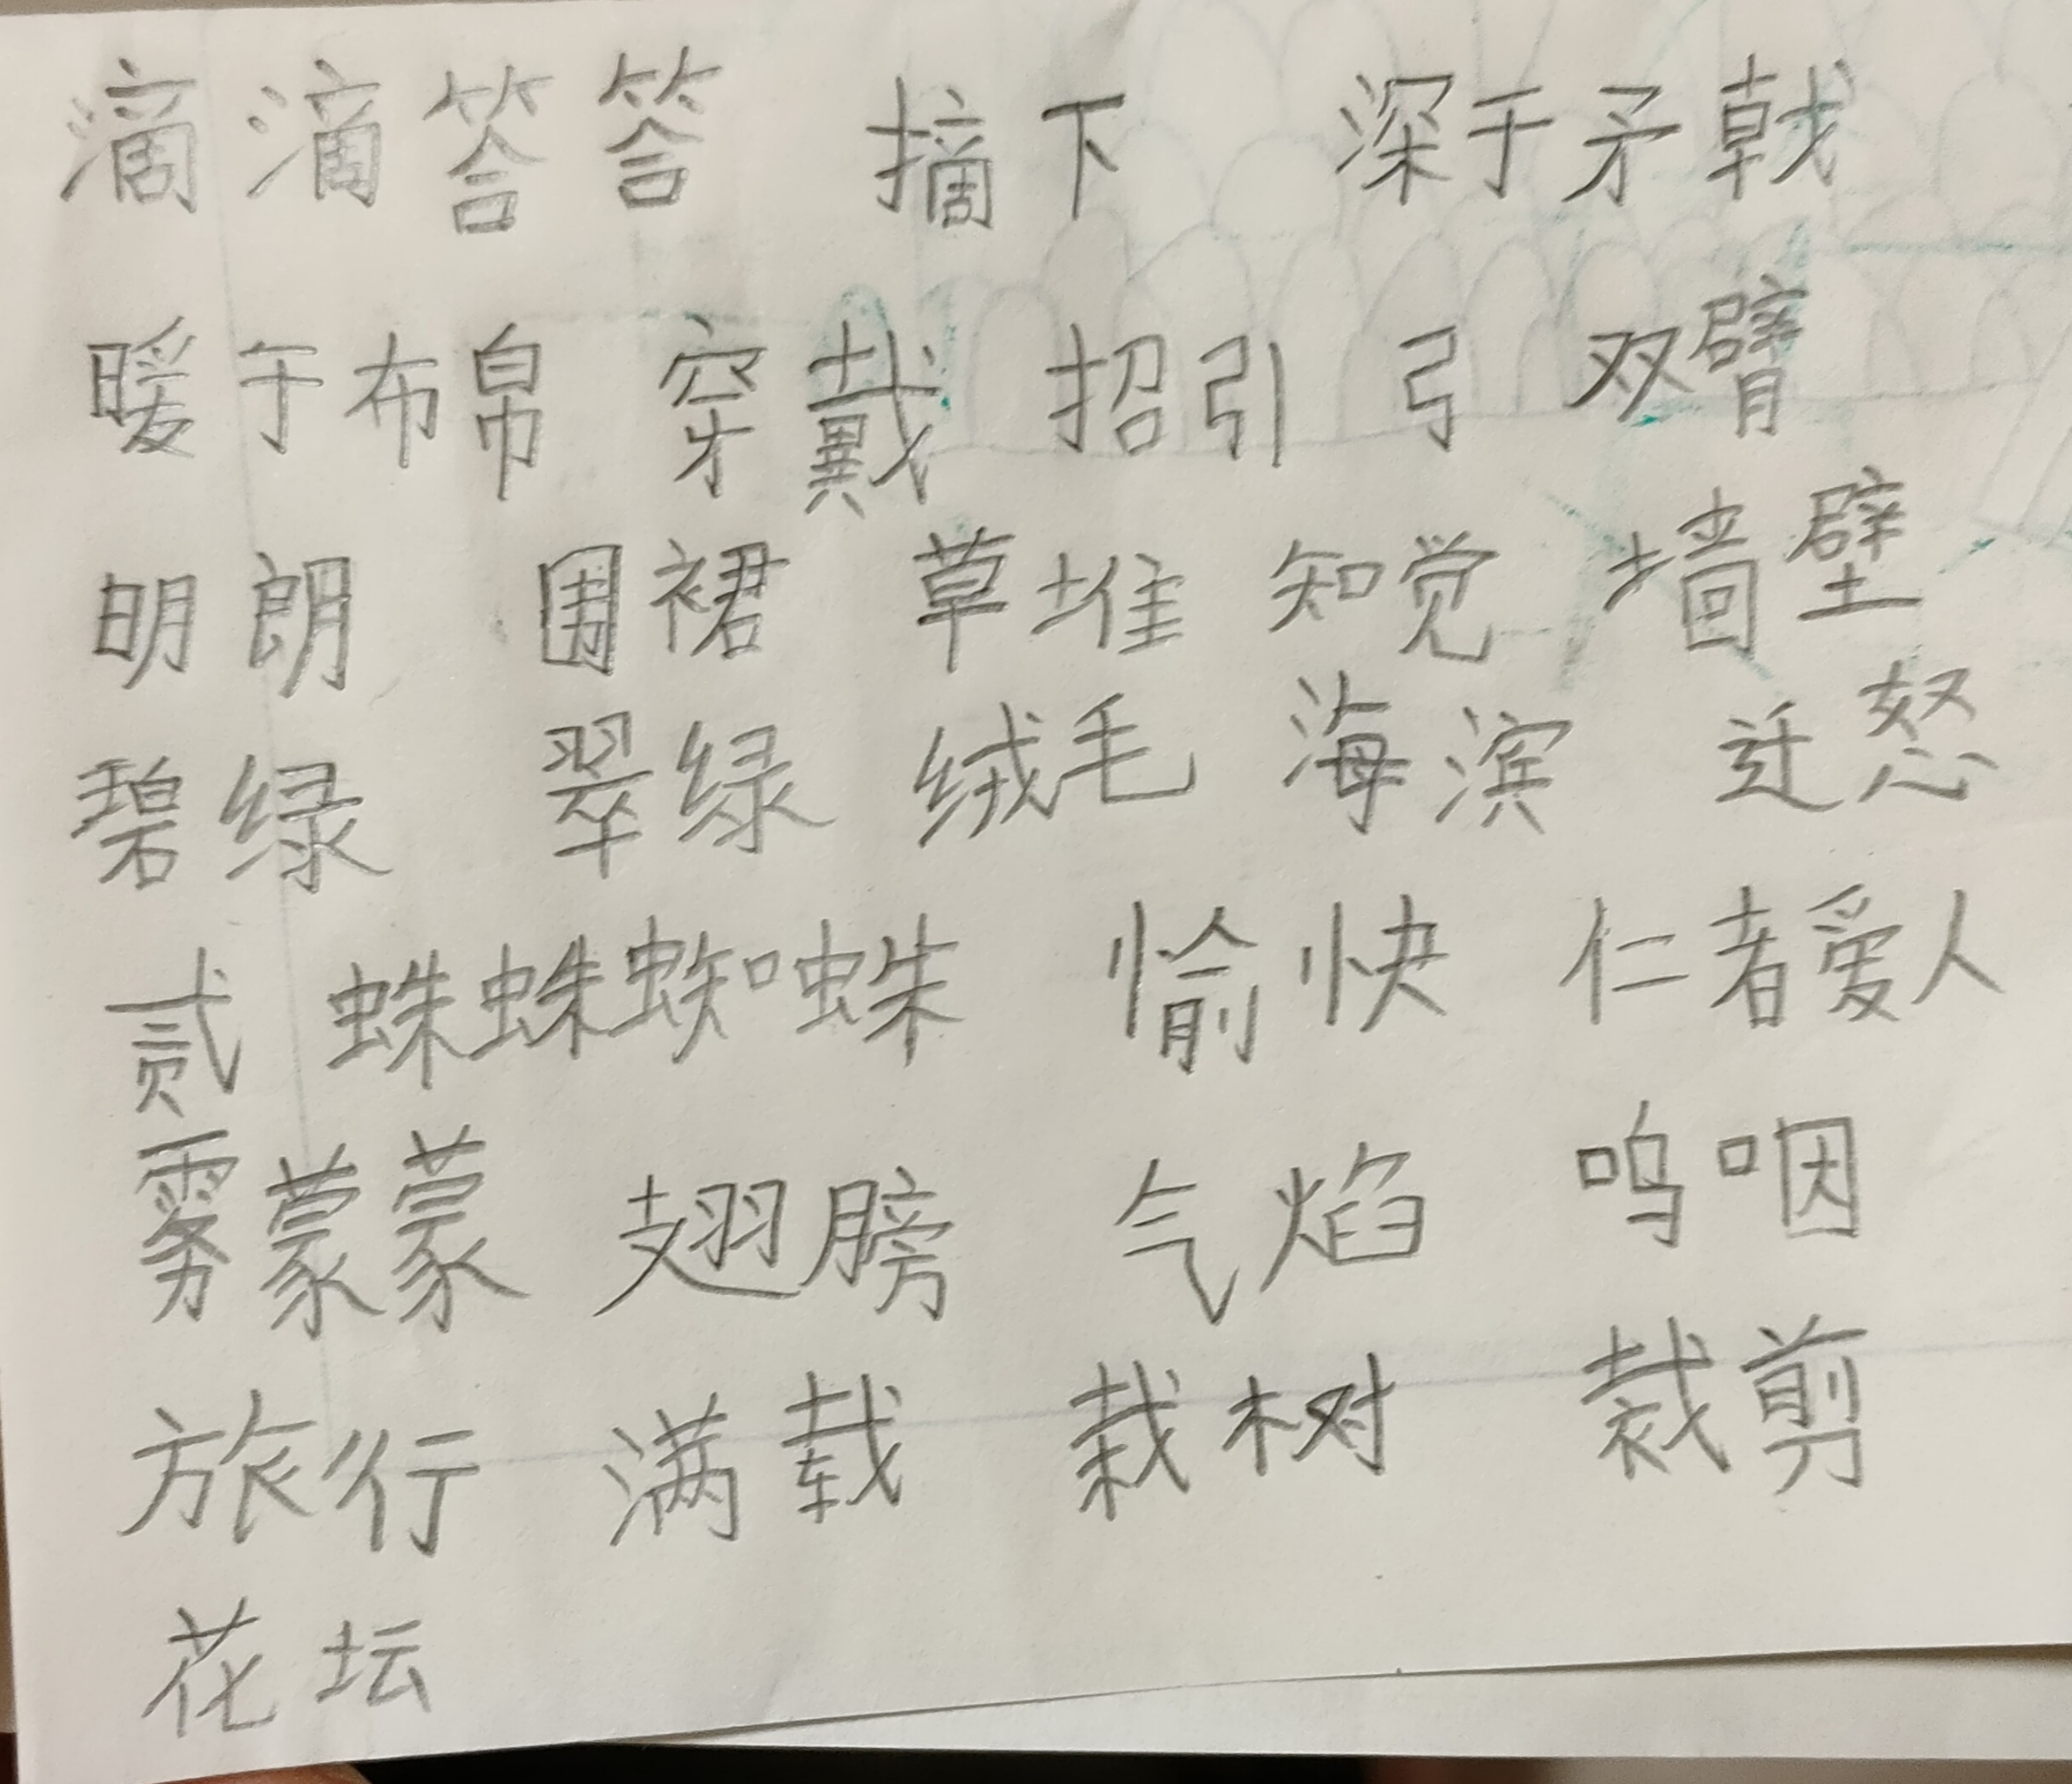 滴滴答答 摘下 深于矛戟
暖于布帛 穿戴 招引 弓 双臂
明朗 围裙 草堆 知觉 墙壁
碧绿 翠绿 绒毛 海滨 迁怒
贰 蛛蛛蜘蛛 愉快 仁者爱人
雾蒙蒙 翅膀 气焰 呜咽
旅行 满载 栽树 裁剪
花坛